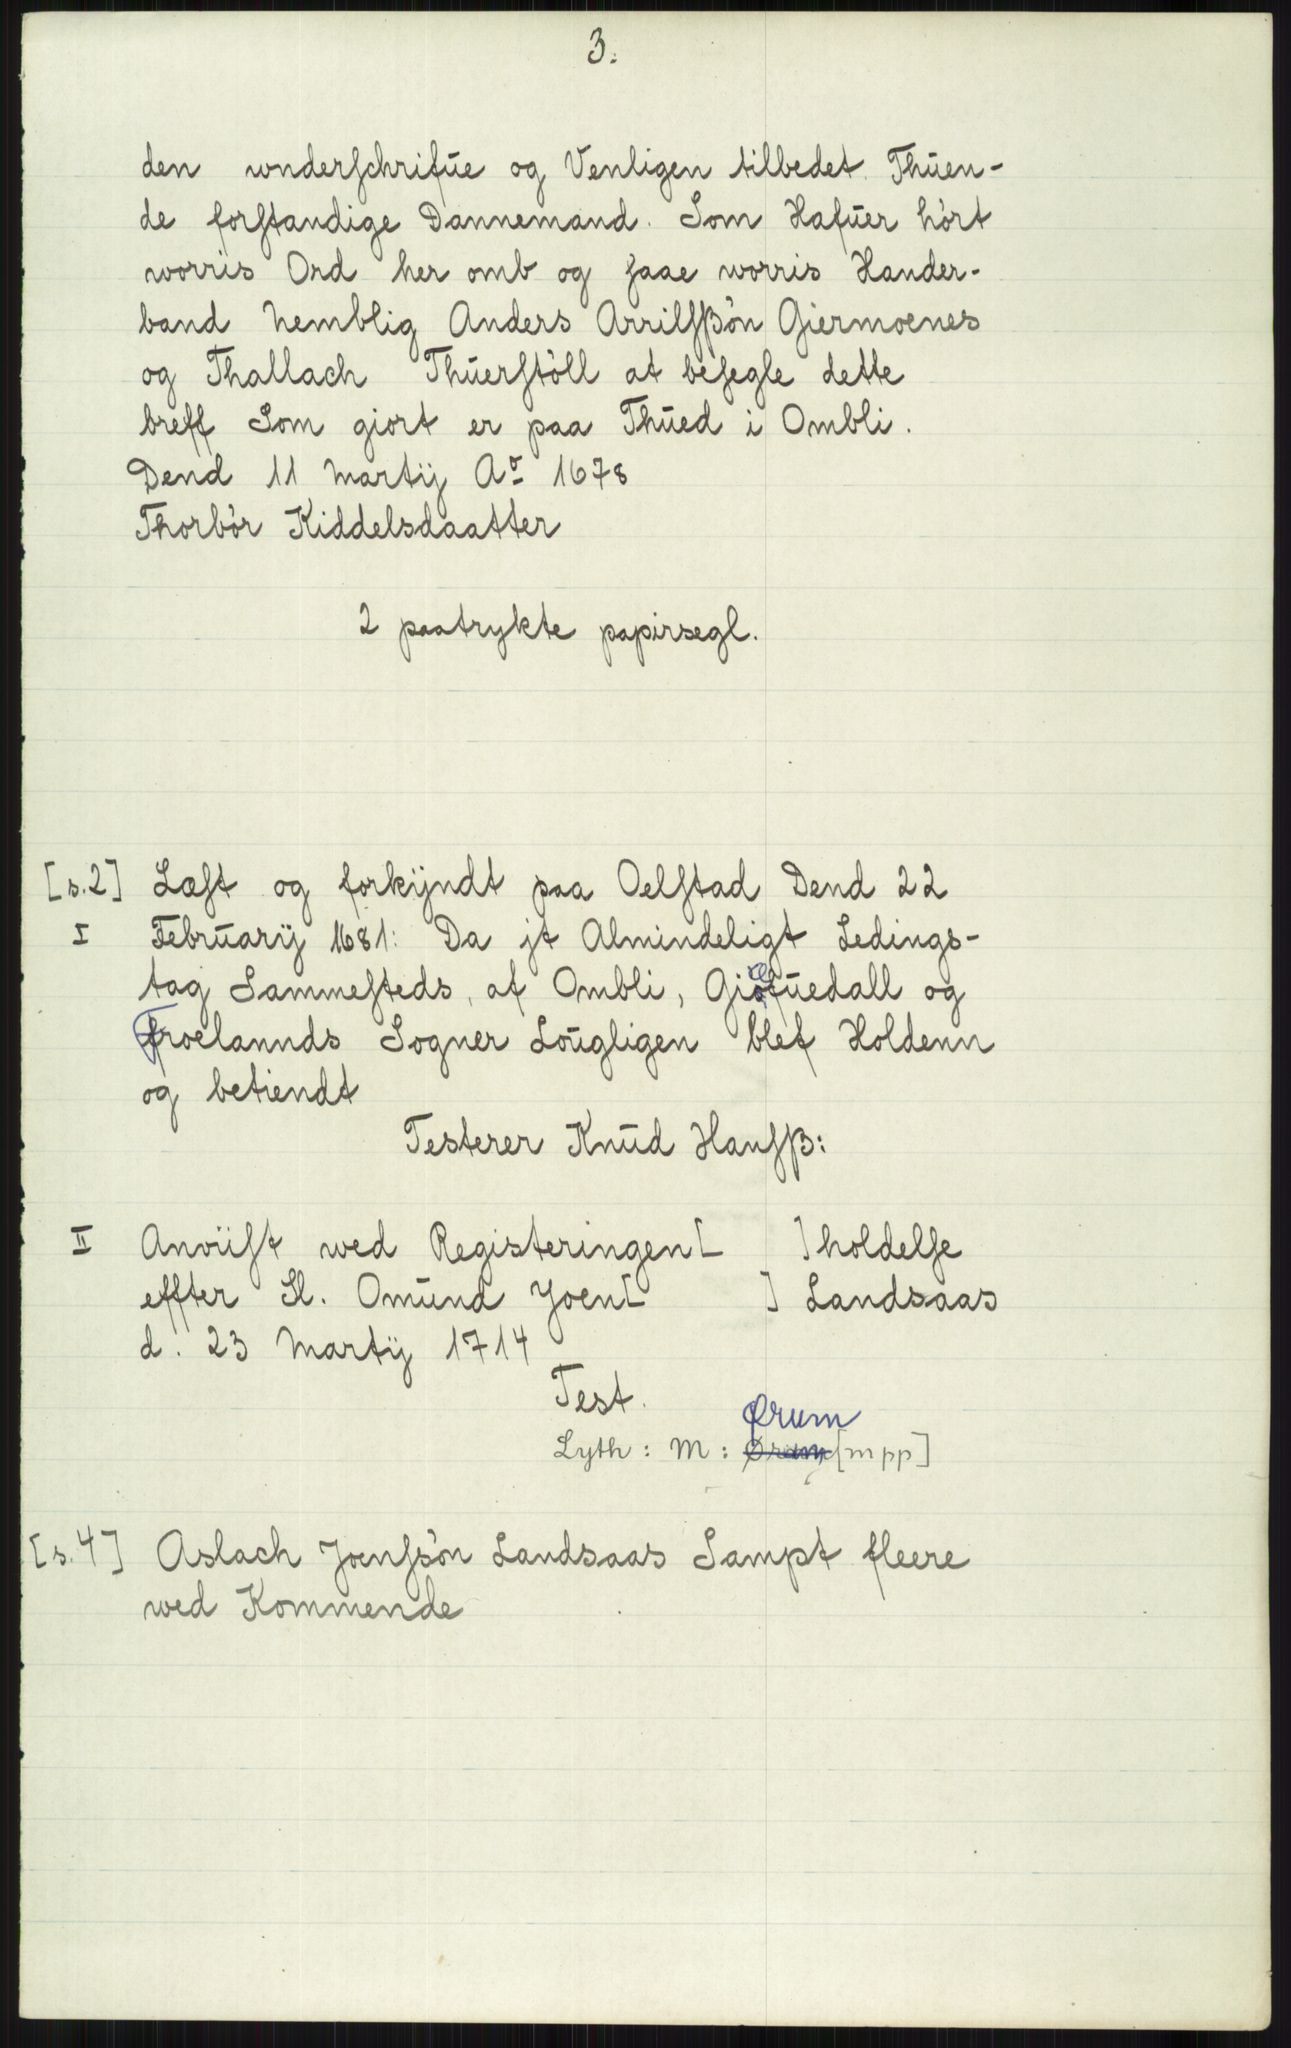 3.
den wnderſchrifue og Venligen tilbedet. Thuen-
de forſtandige Dannemand. Som Hafuer hört
worris Ord her omb og ſaae worris Hander-
band Nemblig Anders Arrilſſön Giermoenes
og Thallach Thuerſtöll at beſegle dette
breff Som giort er paa Thued i Ombli.
Dend 11 Martij Aº 1678
Thorbör Kiddelsdaatter
2 paatrykte papirsegl.
[s.2] Læſt og forkÿndt paa Oelſtad Dend 22
I Februarij 1681: Da jt Almindeligt Ledings-
tag Sammeſteds, af Ombli, Giöfuedall og
Froelannds Sogner Lougligen blef Holdenn
og betiendt
Testerer Knud Hanſſ:
II Anviiſt wed Registeringen[ ]holdelſe
effter Sl. Omund Joen[ ] Landsaas
d. 23 Martij 1714
Test.
Ørum
Lyth: M: Øram [mpp]
[s.4] Aslach Joenſsön Landsaas Sampt fleere
wed Kommende